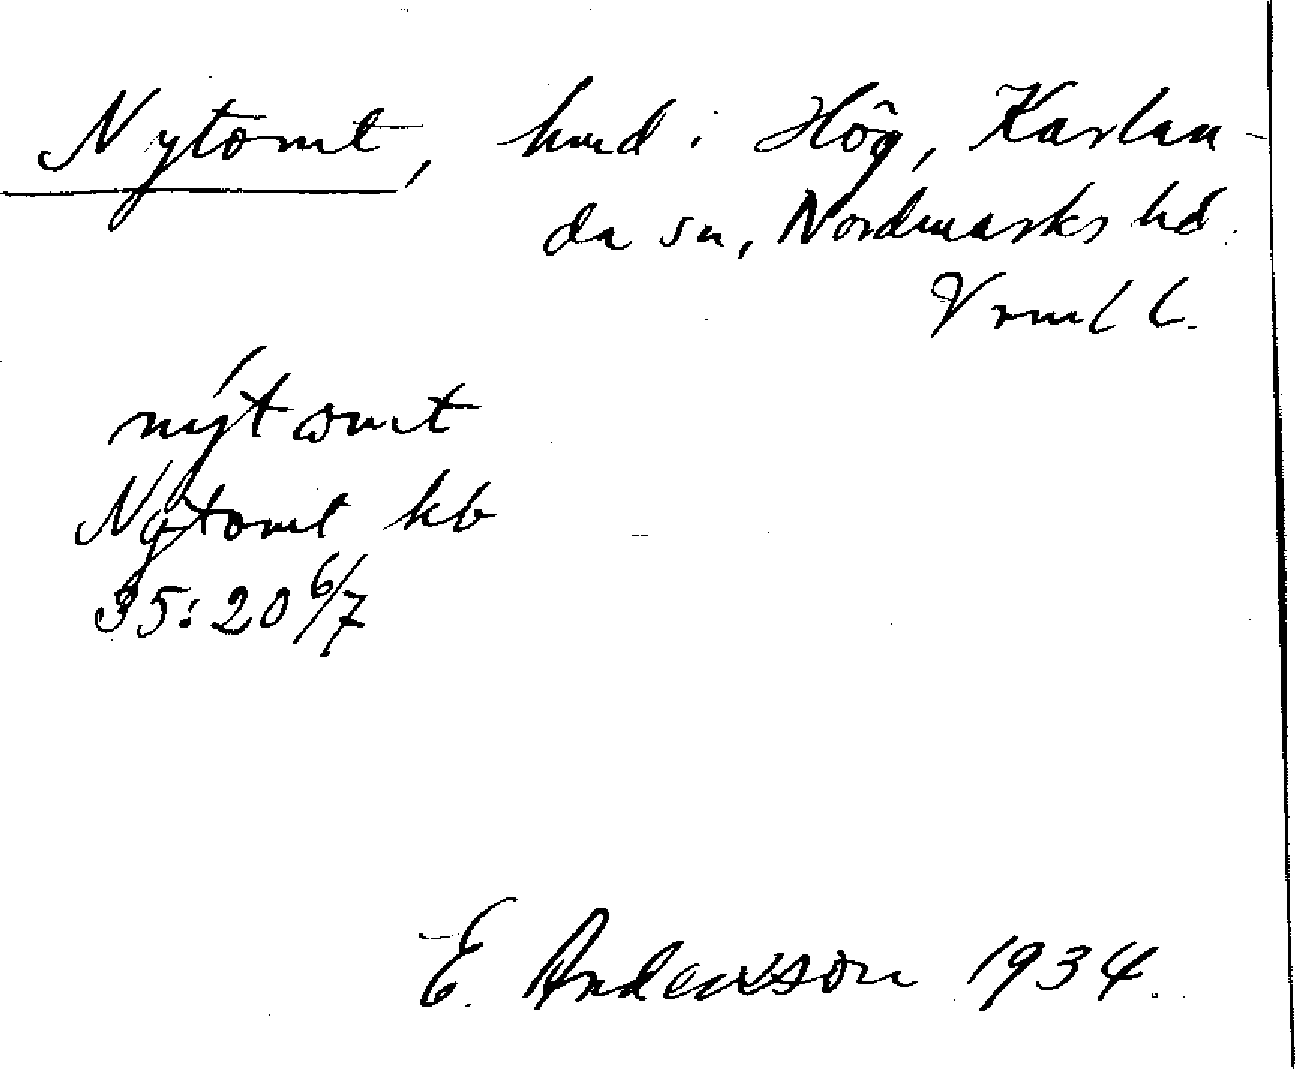 Nytomt, hmd i Hög, Karlan-
da sn, Nordmarks hd.
Vrml l.
nýtωmt
Nytomt kb
35:20 6/7
E. Andersson 1934.